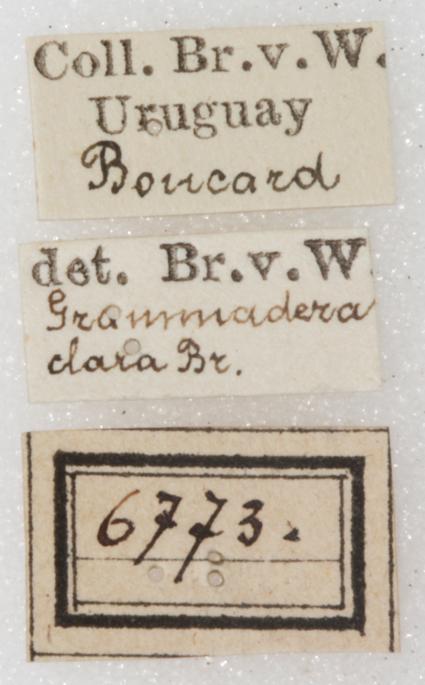 Coll. Br.v.W.
Uruguay
Boucard
det. Br.v.W.
Grammadera
clara Br.
6773.